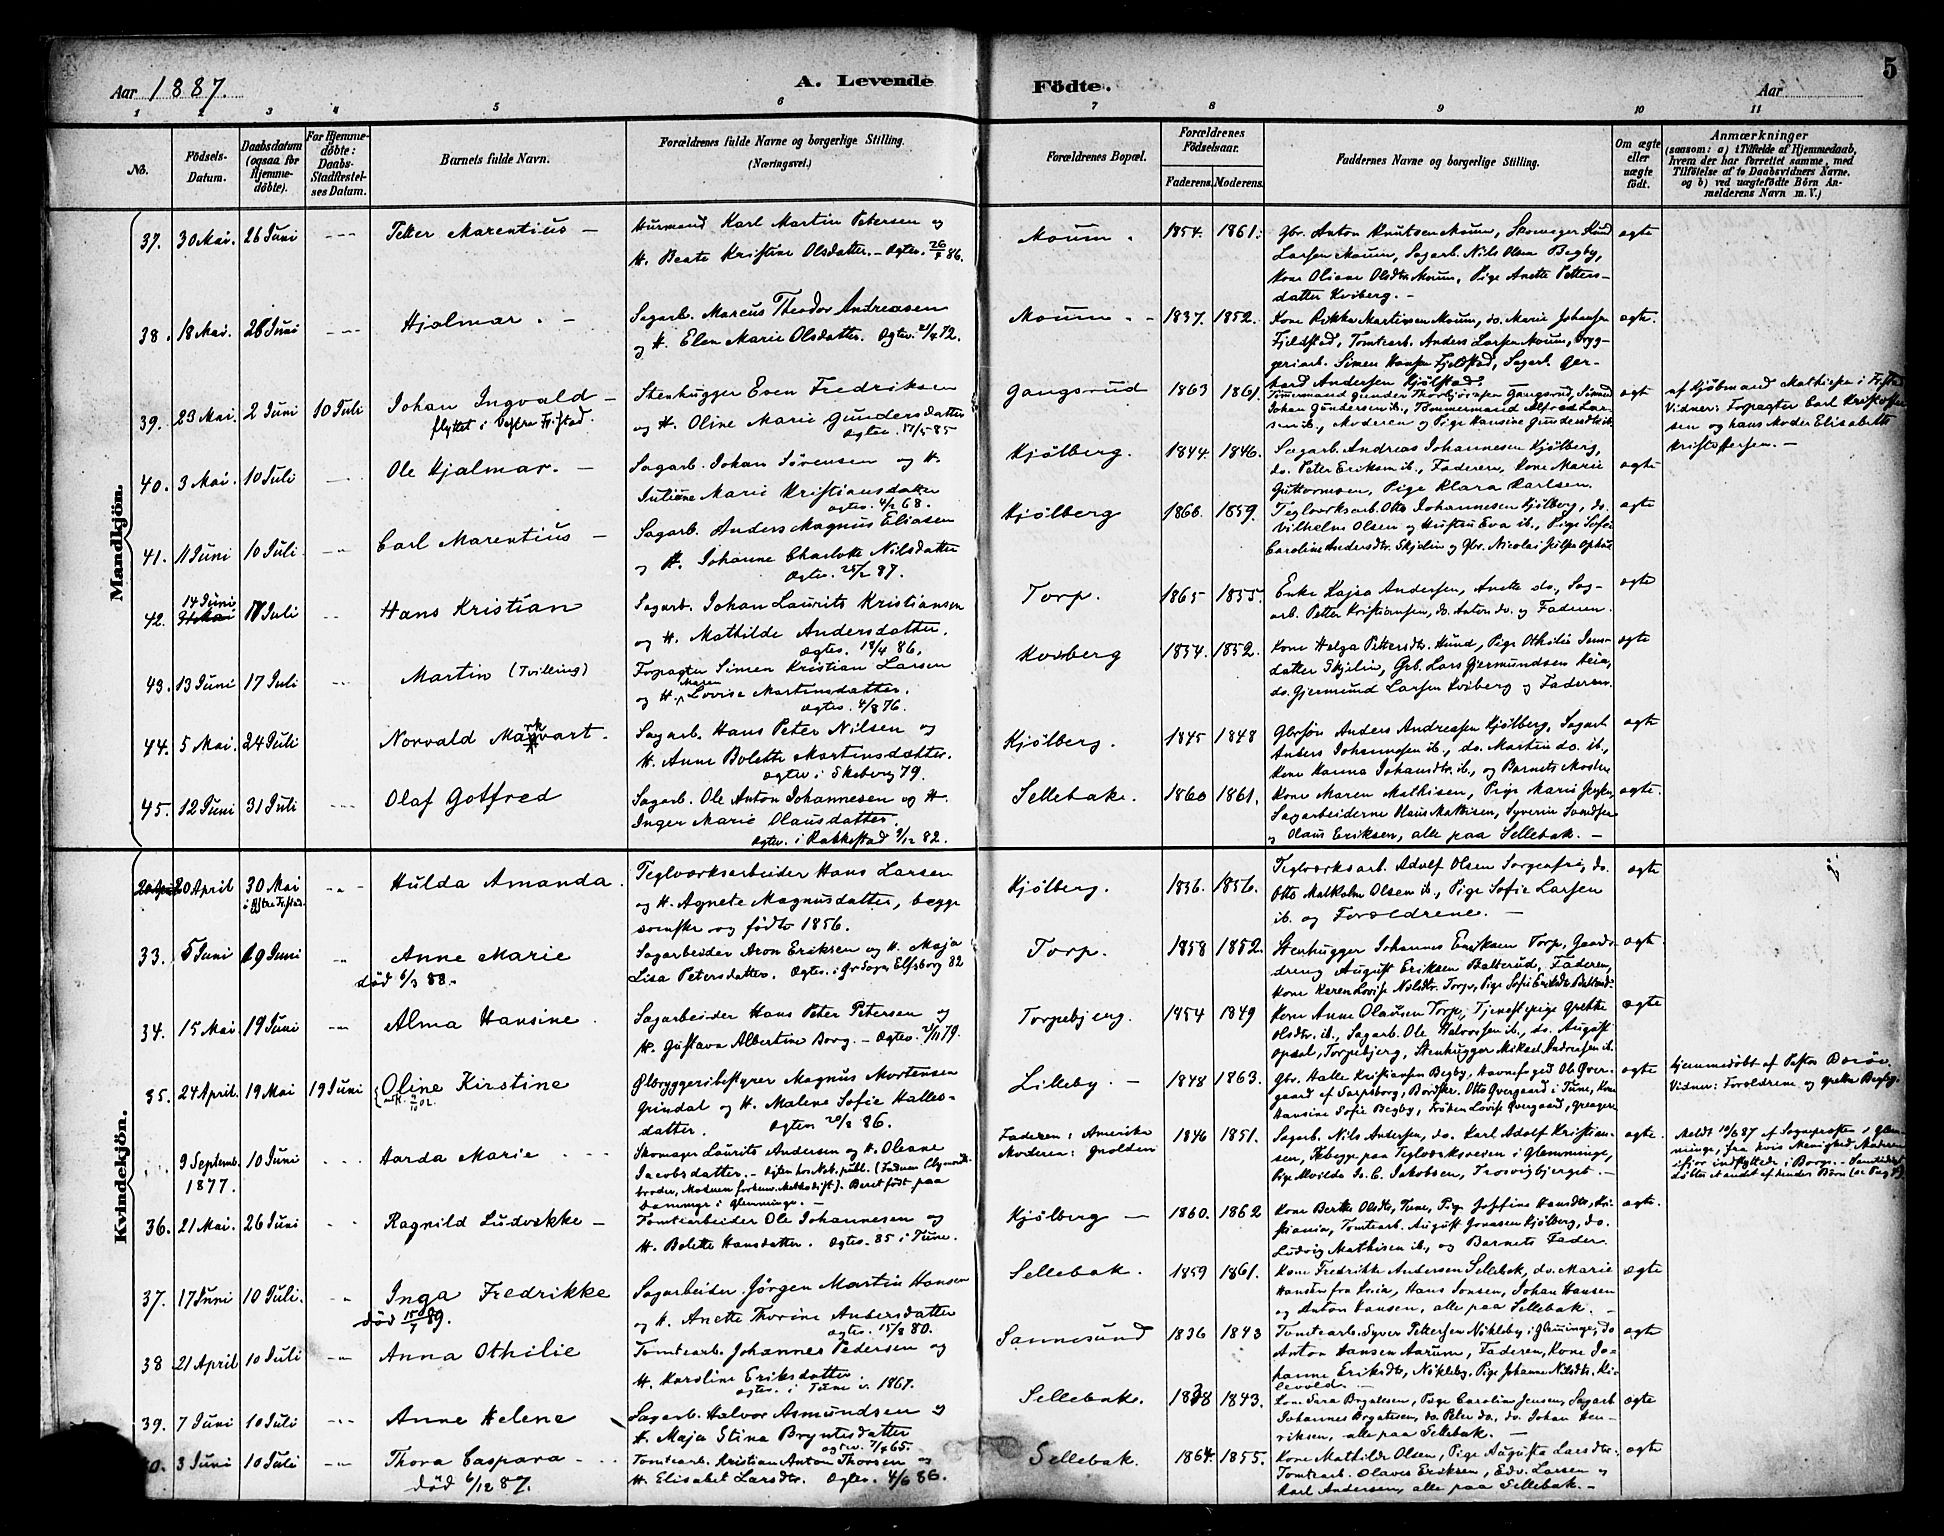 Aar 1887.
A. Levende
Födte.
Aar
5
1 2 3 4 5 6 7 8 9 10 11
No.
Födsels-
Datum.
Daabsdatum
(ogsaa for
Hjemme-
döbte).
For Hjemme-
döbte:
Daabs-
Stadfæstel-
ses Datum.
Barnets fulde Navn.
Forældrenes fulde Navne og borgerlige Stilling.
(Næringsvei.)
Forældrenes Bopæl.
Forældrenes
Födselsaar.
Faderens. Moderens.
Faddernes Navne og borgerlige Stilling.
Om ægte
eller
uægte
födt.
Anmærkninger
(saasom: a) i Tilfælde af Hjemmedaab,
hvem der har forrettet samme, med
Tilföielse af to Daabsvidners Navne,
og b) ved uægtefödte Börn An-
melderens Navn m. V.)
Mandkjön.
37. 30 Mai. 26 Juni
Petter Marentius
Husmand Karl Martin Petersen og
H. Beate Kristine Olsdatter. – Ægtev. 86.
Moum. 1854. 1861.
Gbr. Anton Knutsen Moum, Skomager Knud
Larsen Moum, Sagarb. Nils Olsen Begby,
Kone Oliane Olsdtr. Moum, Pige Anette Petters-
datter Kviberg. –
ægte
38. 18 Mai. 26 Juni
Hjalmar. –
Sagarb. Marcus Theodor Andreasen
og H. Elen Marie Olsdatter. Ægtev. 72.
Moum. – 1837. 1852.
Kone Rikka Martinsen Moum, do. Marie Johansen
Fjeldstad, Tomtearb. Anders Larsen Moum, Bryg-
geriarb. Simen Hansen Fjeldstad, Sagarb. Ger-
hard Andersen Kjölstad.
ægte.
39. 23 Mai. 2 Juni 10 Juli
Johan Ingvald –
flyttet i Vestre Fr.stad.
Stenhugger Even Fredriksen
og H. Oline Marie Gundersdatter
Ægtev. 17/5 85
Gangsrud 1863 1861.
Tömmermand Gunder Thorbjörnsen Gangsrud, Sömand
Johan Gundersen ib., Tömmermand Alfred Lar-
sen ib., Moderen og Pige Hansine Gundersdtr. ib.
ægte
af Kjöbmand Mathiesen i Fr.stad
Vidner: Forpagter Carl Kristoffer-
sen og hans Moder Elisabeth
Kristoffersen. –
40. 3 Mai. 10 Juli
Ole Hjalmar. –
Sagarb. Johan Sörensen og H.
Juliane Marie Kristiansdatter
Ægtev. 4/2 68.
Kjölberg. 1844. 1846.
Sagarb. Andreas Johannesen Kjölberg,
do. Peter Eriksen ib., Faderen, Kone Marie
Guttormsen, Pige Klara Karlsen.
ægte
41. 11 Juni 10 Juli
Carl Marentius –
Sagarb. Anders Magnus Eliasen
og H. Johanne Charlotte Nilsdatter
Ægtev. 25/2 87.
Kjölberg 1860. 1859.
Teglverksarb. Otto Johannesen Kjölberg, do.
Vilhelm Olsen og Hustru Eva ib., Pige Sofie
Caroline Andersdtr. Skjelin og Gbr. Nicolai
ægte
42. 14 Juni 17 Juli
Hans Kristian
Sagarb. Johan Laurits Kristiansen
og H. Mathilde Andersdatter.
Ægtev. 18/4 86.
Torp. 1865 1855.
Enke Kajsa Andersen, Anette do., Sag-
arb. Petter Kristiansen, do. Anton do. og Faderen.
ægte
43. 13 Juni 17 Juli
Martin (Tvilling)
Forpagter Simen Kristian Larsen
og H. Maren Lovise Martinsdatter.
Ægtev. 4/8 76.
Kviberg 1854. 1852.
Kone Helga Pettersdtr. Hund, Pige Othilie Jens-
datter Skjelin, Gbr. Lars Gjermundsen Heia,
do. Gjermund Larsen Kviberg og Faderen.
ægte
44. 5 Mai. 24 Juli
Norvald Markvart.
Sagarb. Hans Peter Nilsen og
H. Anne Bolette Martinsdatter.
Ægtev. i Skeberg 79.
Kjölberg. 1845 1848
Gbrsön Anders Andreasen Kjölberg, Sagarb.
Anders Johannesen ib., do. Martin do. ib.,
Kone Hanna Johansdtr. ib., og Barnets Moder.
ægte
45. 12 Juni 31 Juli
Olaf Gotfred
Sagarb. Ole Anton Johannesen og H.
Inger Marie Olausdatter.
Ægtev. i Rakkestad 9/12 82.
Sellebak. 1860 1861.
Kone Maren Mathisen, Pige Marie
Sagarbeiderne Hans Mathisen, Syverin Svendsen
og Olaus Eriksen, alle paa Sellebak. –
ægte.
Kvindekjön.
20 April 30 Mai
i Östre Fr.stad.
Hulda Amanda.
Teglverksarbeider Hans Larsen
og H. Agnete Magnusdatter, begge
svenske og födte 1856.
Kjölberg. 1856. 1856.
Teglverksarb. Adolf Olsen Sorgenfri, do.
Otto Malkolm Olsen ib., Pige Sofie Larsen
ib. og Forældrene. –
ægte
33. 5 Juni 19 Juni
Anne Marie
död 6/3 88.
Sagarbeider Aron Eriksen og H. Maja
Lisa Petersdatter. Ægtev. i Elfsborg 82
Torp. 1858 1852.
Stenhugger Johannes Eriksen Torp, Gaards-
dreng August Eriksen Balterud, Faderen,
Kone Karen Lovise Nilsdtr. Torp, Pige Sofie Eriksdtr. Balterud.
ægte.
34. 15 Mai 19 Juni
Alma Hansine.
Sagarbeider Hans Peter Petersen og
H. Gustava Albertine Borg. – Ægtev. 79.
Torpebjerg. 1854 1849
Kone Anne Olausen Torp, Tjenestepige Grethe
Olsdtr. ib., Sagarb. Ole Halvorsen ib., do. August
Opsal, Torpebjerg, Stenhugger Mikael Andreasen ib.
ægte
35. 24 April. 19 Mai 19 Juni
Oline Kirstine
Ölbryggeribestyrer Magnus Mortensen
Grindal og H. Malene Sofie Halles-
datter. Ægtev. 86.
Lilleby. – 1848 1863.
Gbr. Halle Kristiansen Begby, Havnefoged Ob. Qver-
gaard af Sarpsborg, Otto Qvergaard i Tune, Kone
Hansine Sofie Begby, Fröken Lovise Qvergaard,
ægte
Hjemmedöbt af Pastor
Vidner: Forældrene og Grethe Begby.
9 Septemb. 1877. 10 Juni
Harda Marie
Skomager Laurits Andersen og H. Oleane
Jacobsdatter. –
Damyr i Glemminge. –
Faderen: Amerika
Moderen: Gnolden
1846 1851.
Sagarb. Nils Andersen, do. Karl Adolf Kristian-
sen, begge paa Teglverksveien i Glemminge,
Pige Alvilda Js. C. Jakobsen, Trosvigbjerget. –
ægte.
Meldt 10/6 87 af Sognepresten i Glem-
minge, fra hvis Menighed Moderen
ifjor indflyttede i Borge. –
36. 21 Mai. 26 Juni
Ragnild Ludvikke –
Tomtearbeider Ole Johannesen og
H. Bolette Hansdatter. Ægtev. 85 i Tune.
Kjölberg – 1860. 1862
Kone Berthe Olsdtr, Tune, Pige Josefine Hansdtr, Kri-
stiania, Tomtearb. August Jonassen Kjölberg, do.
Ludvig Mathisen ib., og Barnets Fader.
ægte.
37. 17 Juni 10 Juli.
Inga Fredrikke
död 89.
Sagarbeider Jörgen Martin Hansen
og H. Anette Thorine Andersdatter
Ægtev. 15/3 80.
Sellebak. 1859 1861.
Kone Fredrikke Andersen Sellebak, do. Marie
Hansen fra Kvia, Hans Jonsen, Johan Hansen
og Anton Hansen, alle paa Sellebak. –
ægte
38 21 April 10 Juli
Anna Othilie
Tomtearb. Johannes Pedersen og
H. Karoline Eriksdatter.
Ægtev. i Tune i 1867.
Sannesund 1836 1843
Tomtearb. Syver Pettersen Nökleby i Glemminge, do
Anton Hansen Aarum, Faderen, Kone Jo-
hanne Eriksdtr, Nökleby, Pige Johanne Nilsdtr.
ægte
39. 7 Juni 10 Juli
Anne Helene
Sagarb. Halvor Asmundsen og
H. Maja Stina Bryntesdatter
Ægtev. 65.
Sellebak. 1838 1843.
Kone Sara Bryntesen, Pige Caroline Jensen, Sagarb
Johannes Bryntesen, do. Peter do, do. Johan Hen-
riksen, alle paa Sellebak. –
ægte
3 Juni 10 Juli
Thora Caspara
död 6/12 87.
Tomtearb. Kristian Anton Thorsen og
H. Elisabet Larsdtr. Ægtev. 4/6 86.
Sellebak. 1864. 1855.
Kone Mathilde Olsen, Pige Augusta Larsdtr.
Tomtearb. Olaves Eriksen, Edv. Larsen og
Karl Andersen, alle paa Sellebak. –
ægte